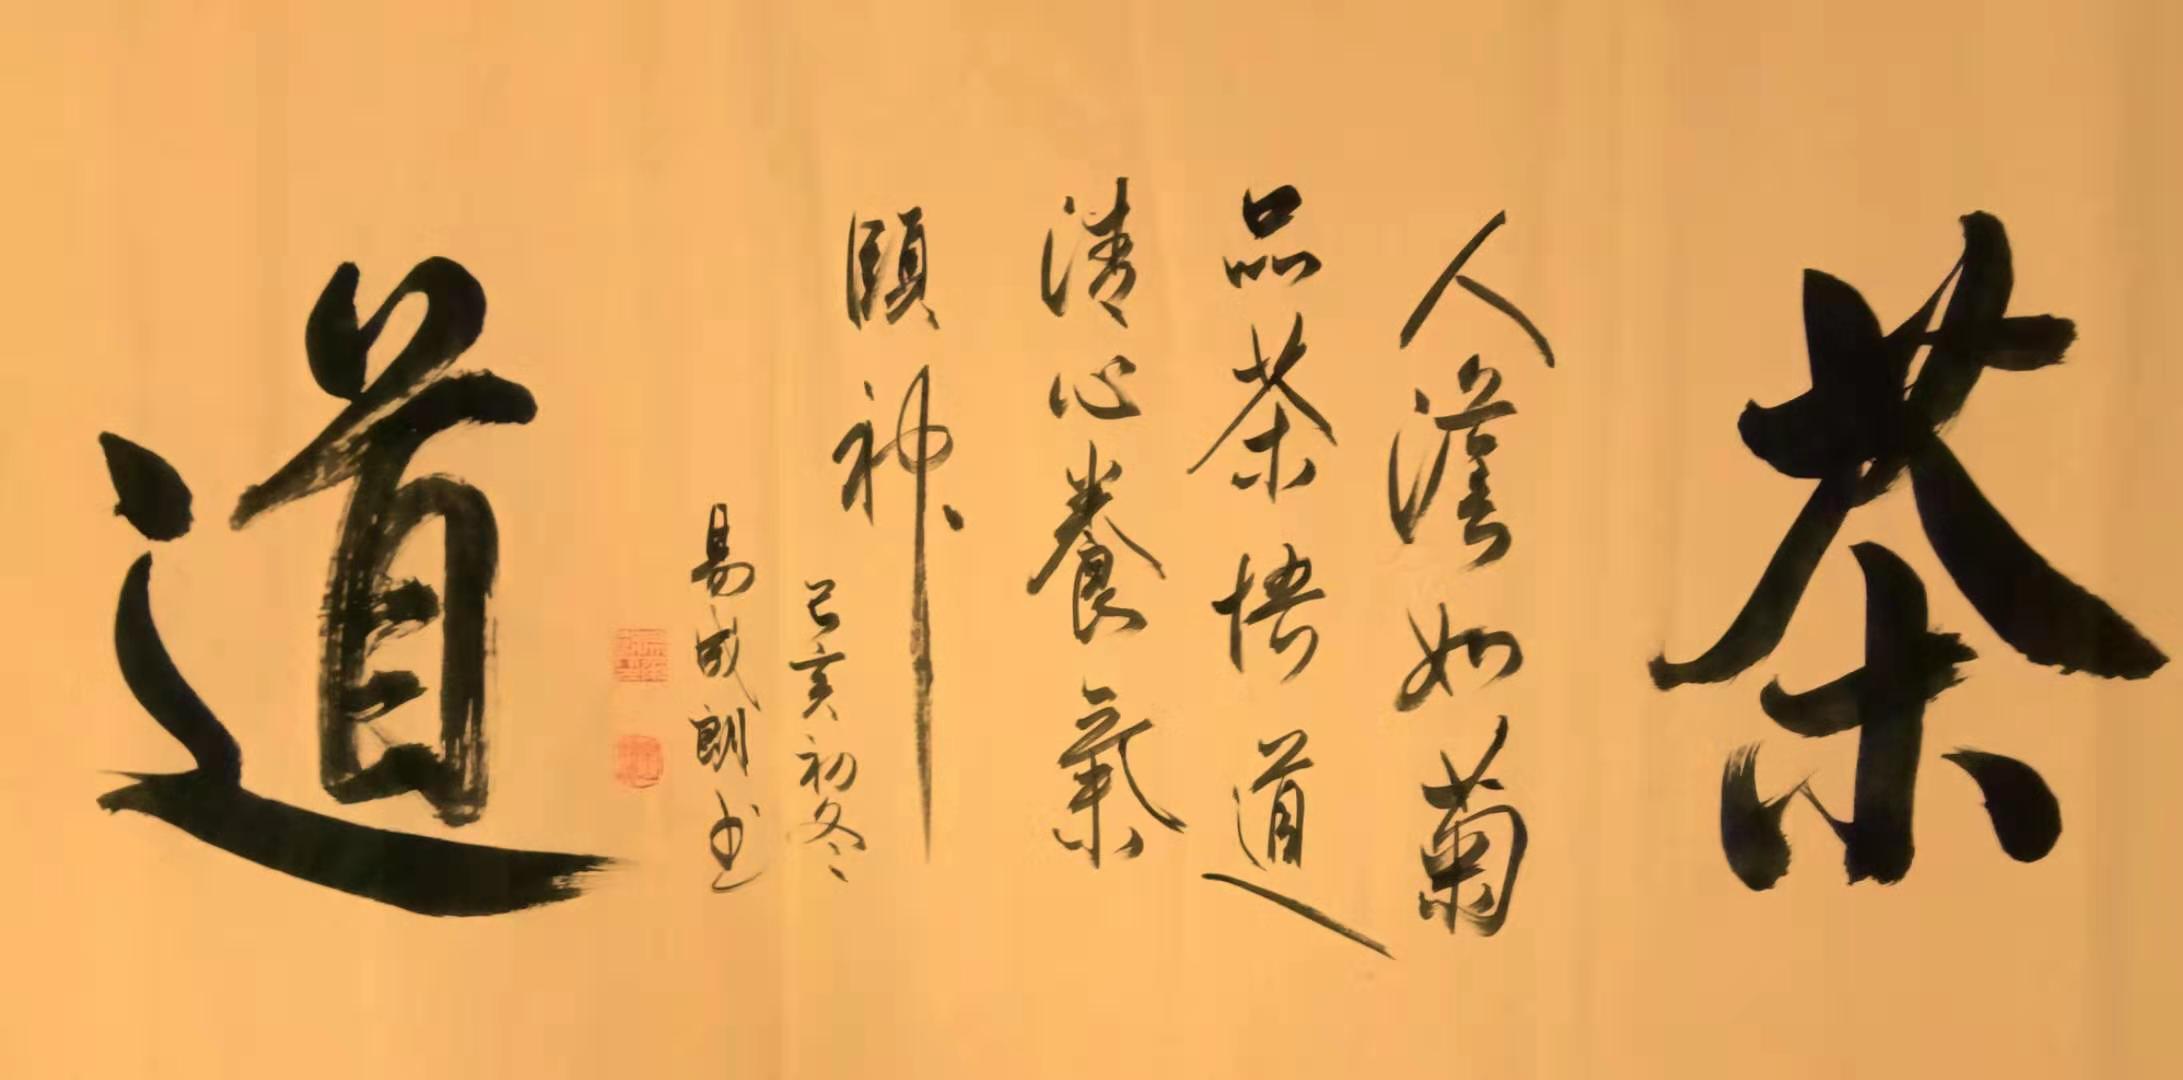 茶
人澹如菊
品茶悟道
清心養氣
頤神
己亥初冬
易成朗书
道